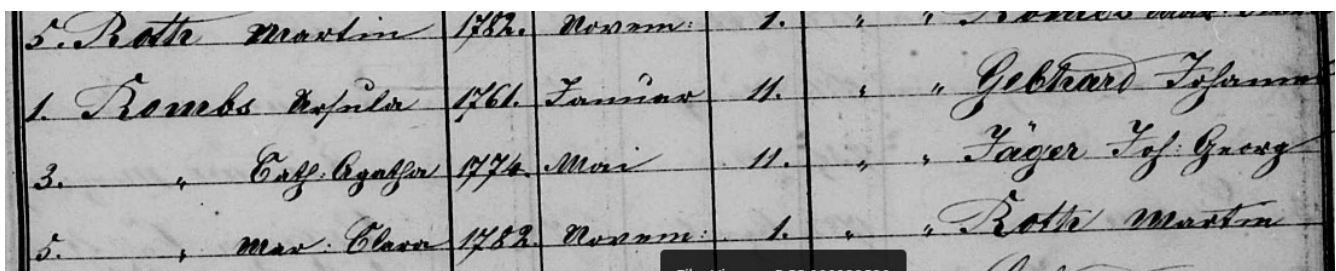 5. Roth Martin 1782. Novem: 1. " " Rombs Mar: Clara
1. Rombs Ursula 1761. Januar 11. " " Gebhard Johannes
3. " Cath: Agatha 1774. Mai 11. " " Jäger Joh: Georg
5. " Mar: Clara 1782. Novem: 1. " " Roth Martin